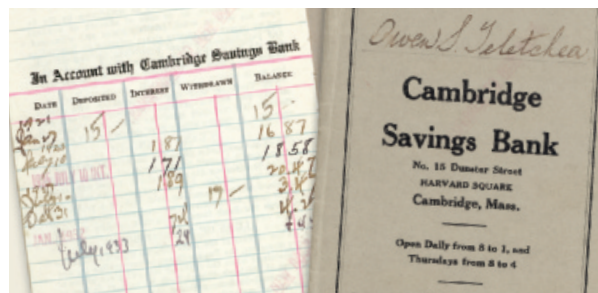 In Account with Cambridge Savings Bank
DATE DEPOSITED INTEREST WITHDRAWN BALANCE
1921
15 — 15 —
1 87 16 87
1 71 18 58
1 89 20 47
17 —
July 1933 24
Owen S. Teletchea
Cambridge
Savings Bank
No. 15 Dunster Street
HARVARD SQUARE
Cambridge, Mass.
Open Daily from 8 to 1, and
Thursdays from 8 to 4